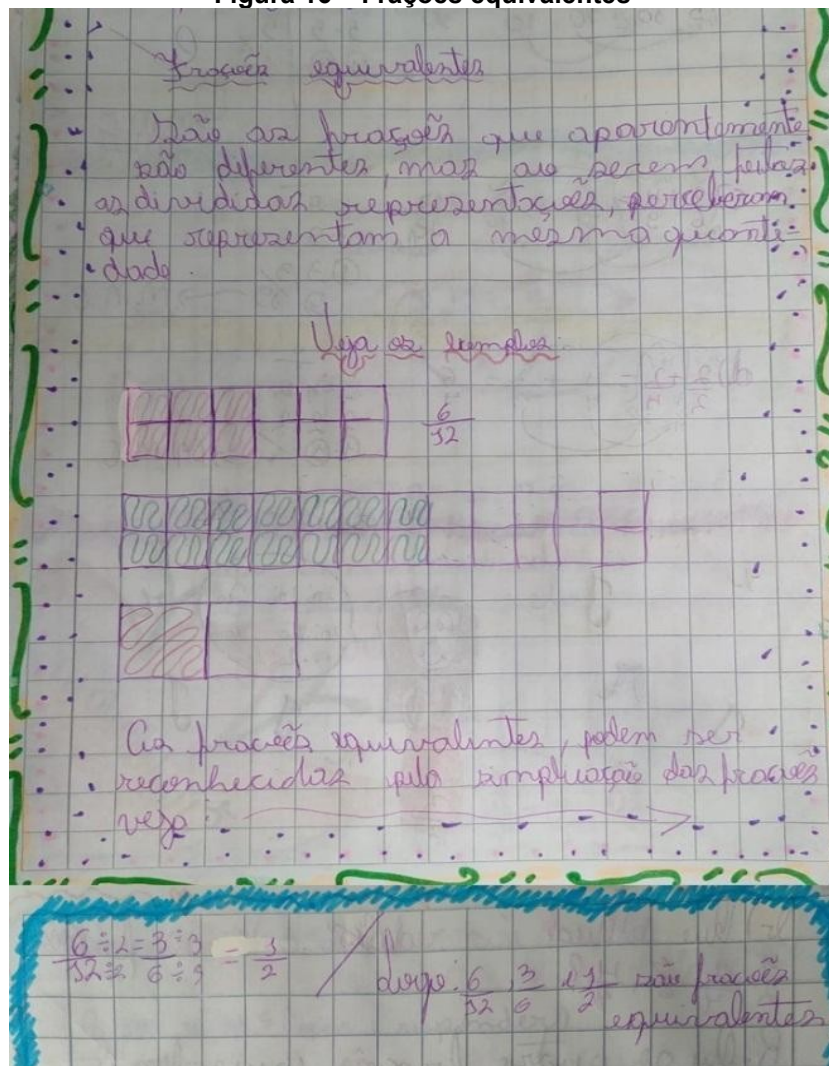 Figura 10 - Frações equivalentes
Frações equivalentes
São as frações que aparentemente
são diferentes, mas ao serem feitas
as divididas representações, perceberam
que representam a mesma quanti-
dade.
Veja os exmplos
6/12
As frações equivalentes, podem ser
reconhecidas pela simplicação das frações
veja:
6÷2/12÷2 = 3÷3/6÷3 = 1/2
Logo: 6/12, 3/6 e 1/2 são frações
equivalentes